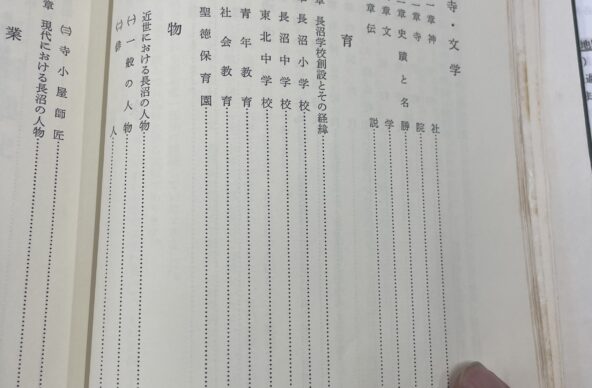 寺・文学
一章 神社
章 寺院
章 史蹟と名勝
章 文学
章 伝説
育
章 長沼学校創設とその経緯
長沼小学校
長沼中学校
東北中学校
青年教育
社会教育
聖徳保育園
物
近世における長沼の人物
㈠ 一般の人物
㈡ 俳人
㈢ 寺小屋師匠
章 現代における長沼の人物
業